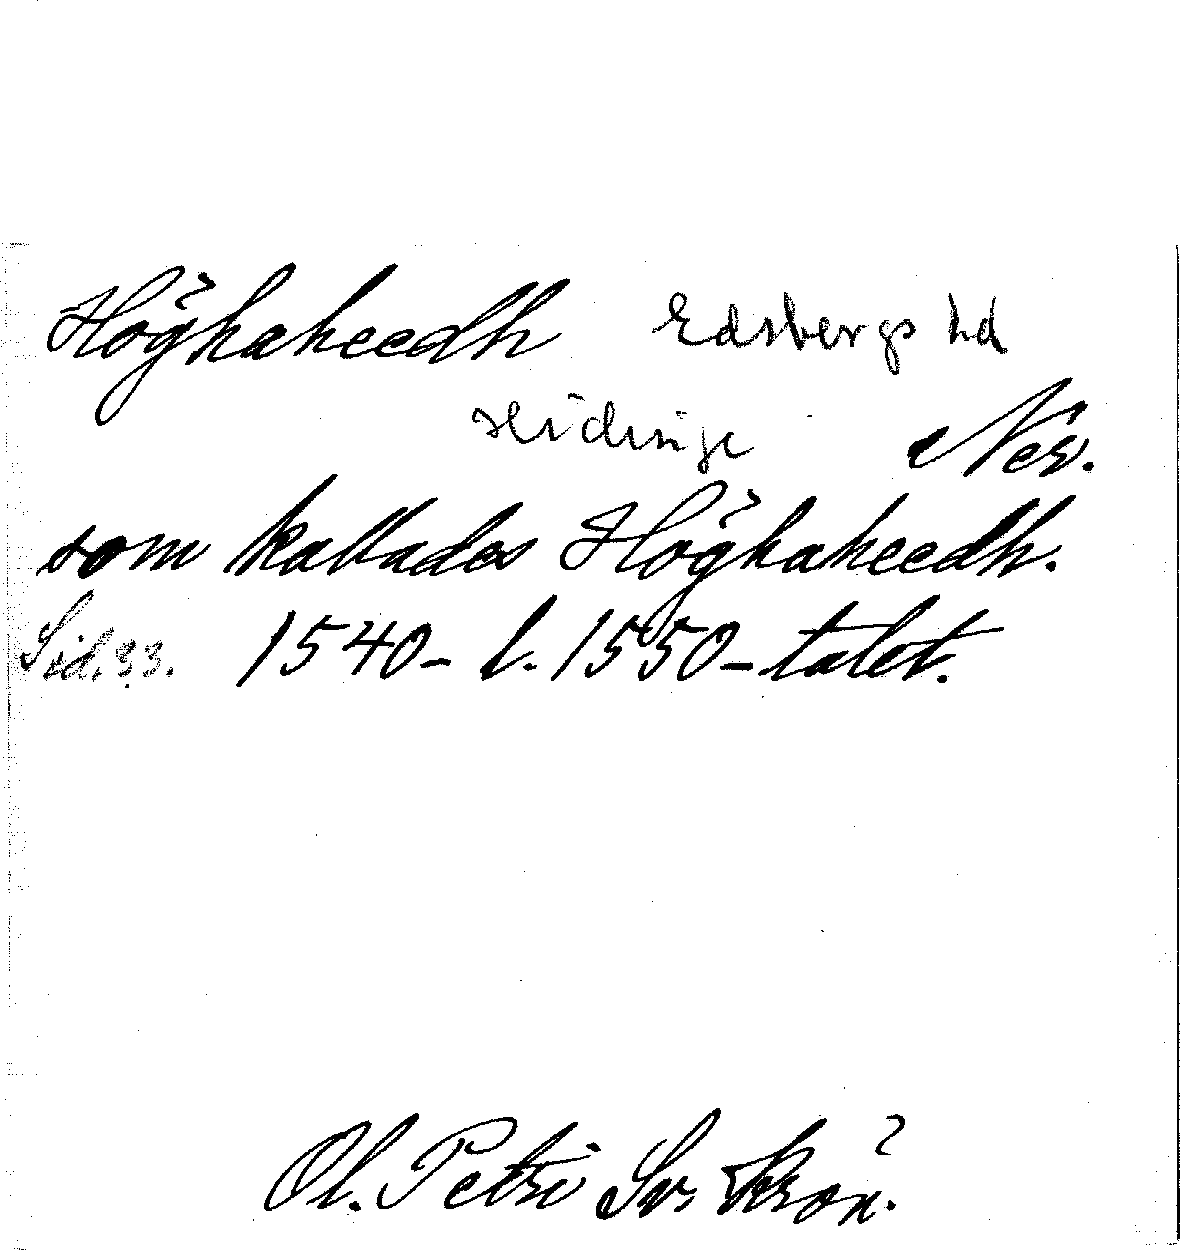 Höghaheedh Edsbergs hd
Hidinge Ner.
som kallades Höghaheedh.
Sid. 33. 1540- l. 1550-talet.
Ol. Petri Sv. Krön.